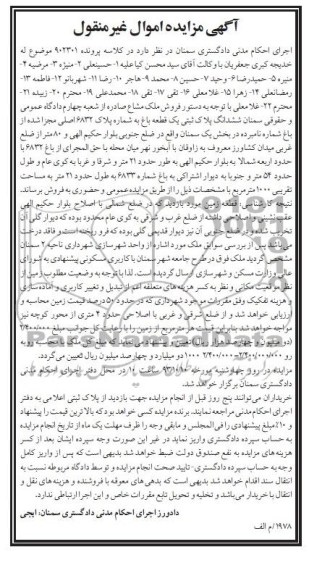 آگهی مزایده اموال غیر منقول
اجرای احکام مدنی دادگستری سمنان در نظر دارد در کلاسه پرونده ۹۰۲۳۰۱ موضوع له
خدیجه کبری جعفریان با وکالت آقای سید محسن کیا علیه ۱-حسینعلی ۲-منیژه ۳-مرضیه ۴-
منیره ۵-حمیدرضا ۶-وحید ۷-حسین ۸-محمد ۹-هاجر ۱۰-رضا ۱۱-شهربانو ۱۲-فاطمه ۱۳-
رمضانعلی ۱۴-زهرا ۱۵-غلامعلی ۱۶-تقی ۱۷-نقی ۱۸-محمدعلی ۱۹-محترم ۲۰-زبیده ۲۱-
محترم ۲۲-غلامعلی با توجه به دستور فروش ملک مشاع صادره از شعبه چهارم دادگاه عمومی
و حقوقی سمنان ششدانگ پلاک ثبتی یک قطعه باغ به شماره پلاک ۶۸۳۲ اصلی مجزا شده از
باغ شماره نامبرده در بخش یک سمنان واقع در ضلع جنوبی بلوار حکیم الهی و ۸۰متر از ضلع
غربی میدان کشاورز معروف به زاوقان با آبخور نهر میان محله با حق المجرای از باغ ۶۸۳۲ با
حدود اربعه شمالا به بلوار حکیم الهی به طور حدود ۲۱ متر و شرقا و غربا به کوی عام و طول
حدود ۵۴ متر و جنوبا به دیوار اشتراکی به باغ شماره ۶۸۳۳ به طول حدود ۲۱ متر به مساحت
تقریبی ۱۰۰۰مترمربع با مشخصات ذیل را از طریق مزایده عمومی و حضوری به فروش برساند.
نتیجه کارشناسی: قطعه زمین مورد بازدید که در ضلع شمالی با اصلاح بلوار حکیم الهی
عقب نشینی و اصلاحی داشته از ضلع غرب و شرقی به کوی عام محدود بوده که دیوار گلی آن
تخریب شده و در ضلع جنوبی آن نیز دیوار قدیمی گلی بوده که فرو ریخته است و فاقد درخت
می باشد پس از بررسی سوابق ملک مورد اشاره از واحد شهرسازی شهرداری ناحیه ۲ سمنان
مشخص گردید ملک فوق در طرح جامعه شهرسمنان با کاربری مسکونی پیشنهادی به شورای
عالی وزارت مسکن و شهرسازی ارسال گردیده است. لذا با توجه به وضعیت مطلوب زمین از
نظر موقعیت مکانی و نظر به کسر هزینه های متعلقه اعم از تبدیل و تغییر کاربری و آماده سازی
و هزینه تفکیک وفق مقررات موجود شهرداری که در حدود ۵۰ درصد قیمت زمین محاسبه و
ارزیابی خواهد شد و از ضلع شرقی و غربی با اصلاحی حدود ۲ متری از محور کوچه نیز
مواجه خواهد شد بنابراین قیمت هر مترمربع از زمین را با رعایت کل جوانب مبلغ ۲/۴۰۰/۰۰۰
(دو میلیون و چهارصد هزار ریال) تعیین و پیشنهاد می نماید که مبلغ کل ملک با محاسب روبه
رو ۲/۴۰۰/۰۰۰/۰۰۰=۲/۴۰۰/۰۰۰*۱۰۰۰ دو میلیارد و چهارصد میلیون ریال تعیین می گردد.
مزایده در روز چهارشنبه مورخه ساعت ۱۰ در محل دفتر اجرای احکام مدنی
دادگستری سمنان برگزار خواهد شد.
خریداران می توانند پنج روز قبل از انجام مزایده جهت بازدید از پلاک ثبتی اعلامی به دفتر
اجرای احکام مدنی مراجعه نمایند. برنده مزایده کسی خواهد بود که بالاترین قیمت را پیشنهاد
و ۱۰٪مبلغ پیشنهادی را فی المجلس و مابقی وجه را ظرف مهلت یک ماه از تاریخ انجام مزایده
به حساب سپرده دادگستری واریز نماید در غیر این صورت وجه سپرده ایشان بعد از کسر
هزینه های مزایده به نفع صندوق دولت ضبط خواهد شد بدیهی است که پس از واریز کامل
وجه به حساب سپرده دادگستری-تایید صحت انجام مزایده و توسط دادگاه مربوطه نسبت به
انتقال سند اقدام خواهد شد بدیهی است که بدهی های معوقه با فروشنده و هزینه های نقل و
انتقال با خریدار می باشد و تخلیه و تحویل تابع مقررات خاص و این اجرا ارتباطی ندارد.
دادورز اجرای احکام مدنی دادگستری سمنان؛ ایجی
۱۹۷۸/م الف